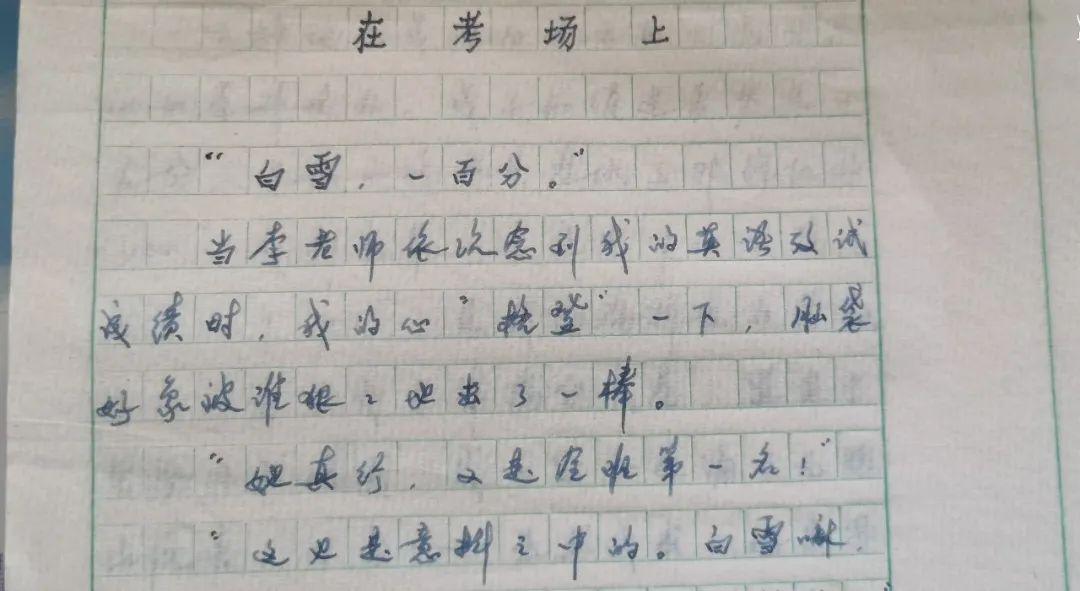 在考场上
“白雪，一百分。”
当李老师依次念到我的英语考试
成绩时，我的心“格登”一下，脑袋
好象被谁狠〻地敲了一棒。
“她真行，又是全班第一名！”
“这也是意料之中的。白雪嘛，